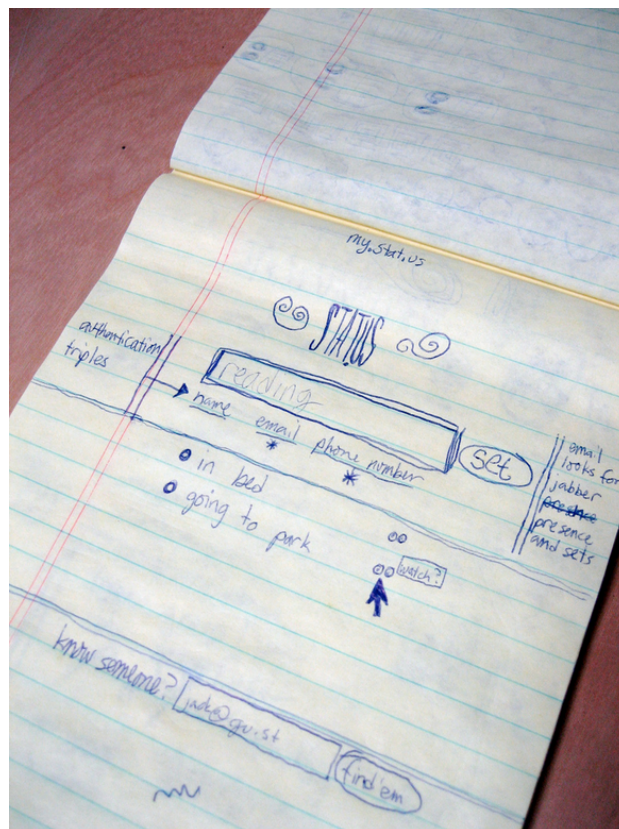 my.stat.us
STAT.US
authentication
triples
reading
name email phone number
* *
set
email
looks for
jabber
presence
presence
and sets
in bed
going to park
watch?
know someone? jack@gu.st
find 'em